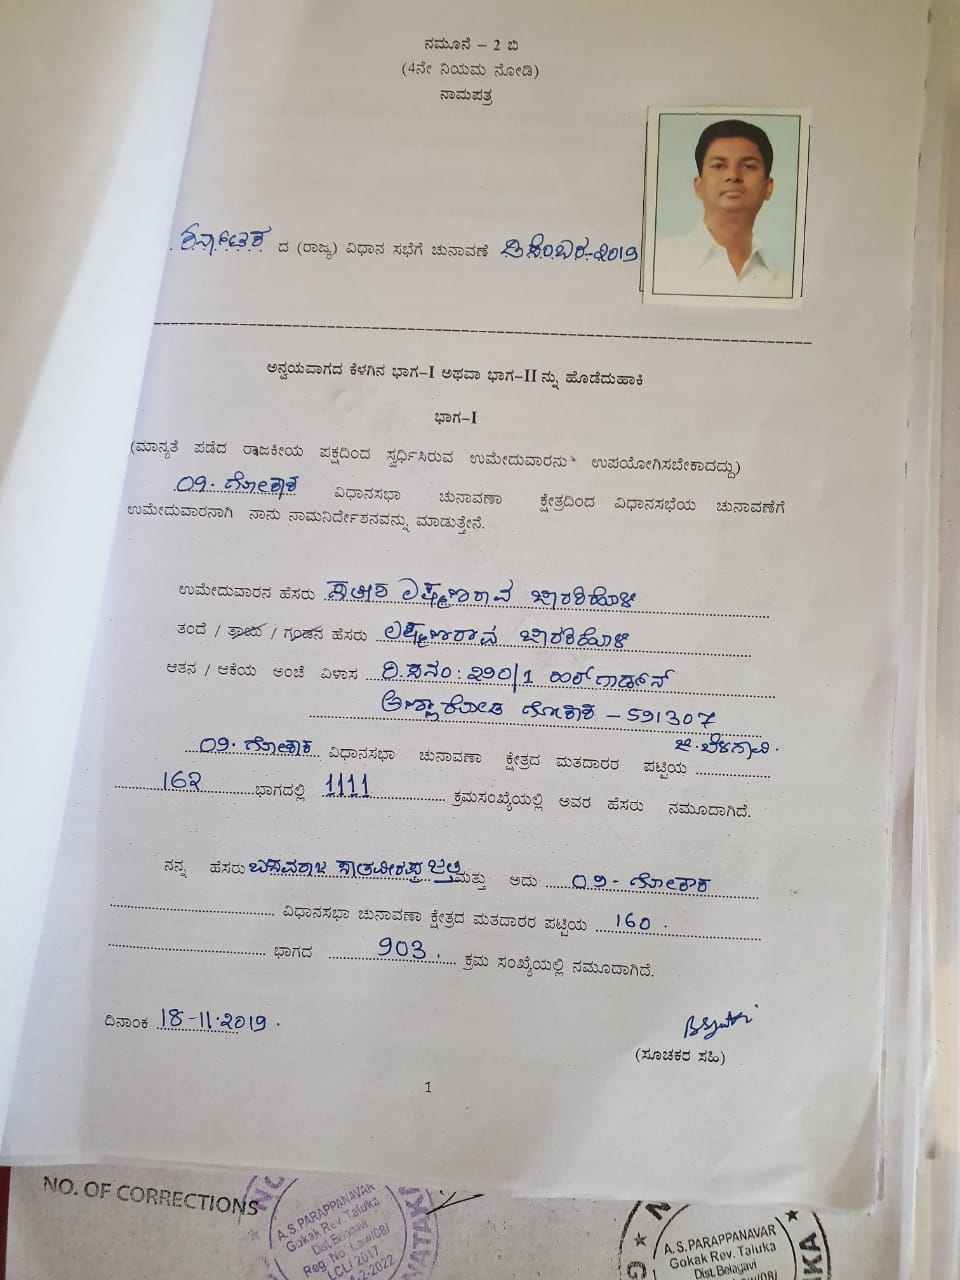 ನಮೂನೆ – 2 ಬಿ
(4ನೇ ನಿಯಮ ನೋಡಿ)
ನಾಮಪತ್ರ
ಕರ್ನಾಟಕ ದ (ರಾಜ್ಯ) ವಿಧಾನ ಸಭೆಗೆ ಚುನಾವಣೆ ಡಿಸೆಂಬರ-೨೦19
ಅನ್ವಯವಾಗದ ಕೆಳಗಿನ ಭಾಗ-I ಅಥವಾ ಭಾಗ-II ನ್ನು ಹೊಡೆದುಹಾಕಿ
ಭಾಗ-I
(ಮಾನ್ಯತೆ ಪಡೆದ ರಾಜಕೀಯ ಪಕ್ಷದಿಂದ ಸ್ಪರ್ಧಿಸಿರುವ ಉಮೇದುವಾರನು ಉಪಯೋಗಿಸಬೇಕಾದದ್ದು)
09. ಗೋಕಾಕ ವಿಧಾನಸಭಾ ಚುನಾವಣಾ ಕ್ಷೇತ್ರದಿಂದ ವಿಧಾನಸಭೆಯ ಚುನಾವಣೆಗೆ
ಉಮೇದುವಾರನಾಗಿ ನಾನು ನಾಮನಿರ್ದೇಶನವನ್ನು ಮಾಡುತ್ತೇನೆ.
ಉಮೇದುವಾರನ ಹೆಸರು ಸತೀಶ ಲಕ್ಷ್ಮಣರಾವ ಜಾರಕಿಹೊಳಿ
ತಂದೆ / ತಾಯಿ / ಗಂಡನ ಹೆಸರು ಲಕ್ಷ್ಮಣರಾವ ಜಾರಕಿಹೊಳಿ
ಆತನ / ಆಕೆಯ ಅಂಚೆ ವಿಳಾಸ ರಿ.ಸನಂ: ೨೨೦/1 ಹಿಲ್ ಗಾರ್ಡನ್
ಗೋಕಾಕ – 591307
ಜಿ. ಬೆಳಗಾವಿ.
09. ಗೋಕಾಕ ವಿಧಾನಸಭಾ ಚುನಾವಣಾ ಕ್ಷೇತ್ರದ ಮತದಾರರ ಪಟ್ಟಿಯ
16೭ ಭಾಗದಲ್ಲಿ 1111 ಕ್ರಮಸಂಖ್ಯೆಯಲ್ಲಿ ಅವರ ಹೆಸರು ನಮೂದಾಗಿದೆ.
ನನ್ನ ಹೆಸರು ಬಸವರಾಜ ಜತ್ತಿ ಮತ್ತು ಅದು 09- ಗೋಕಾಕ
ವಿಧಾನಸಭಾ ಚುನಾವಣಾ ಕ್ಷೇತ್ರದ ಮತದಾರರ ಪಟ್ಟಿಯ 160.
ಭಾಗದ 903. ಕ್ರಮ ಸಂಖ್ಯೆಯಲ್ಲಿ ನಮೂದಾಗಿದೆ.
ದಿನಾಂಕ 18-11.೨೦19.
(ಸೂಚಕರ ಸಹಿ)
1
NO. OF CORRECTIONS
A.S.PARAPPANAVAR
Gokak Rev. Taluka
Dist.Belagavi
Reg. No. Law/08/
LCLI 2017
A.S.PARAPPANAVAR
Gokak Rev. Taluka
Dist.Belagavi